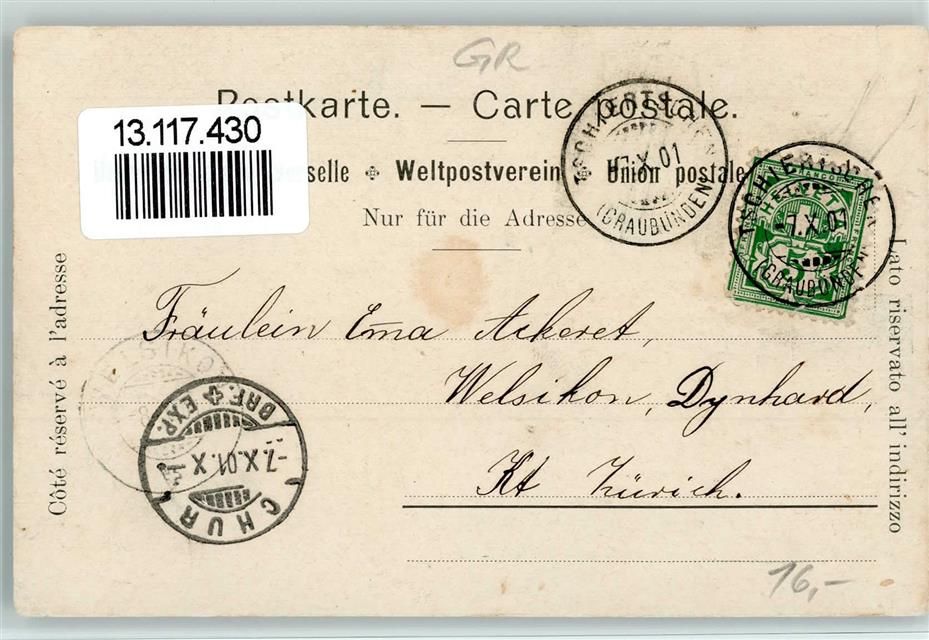 GR
Postkarte. — Carte postale.
13.117.430
selle ✣ Weltpostverein ✣ Union postale
Nur für die Adresse
TSCHIERTSCHEN
-7.X.01
(GRAUBÜNDEN)
TSCHIERTSCHEN
-7.X.01
(GRAUBÜNDEN)
FRANCO
HELVETIA
5
Côté réservé à l'adresse
Lato riservato all' indirizzo
Fräulein Ema Ackeret,
Welsikon, Dynhard,
Kt Zürich.
BRF. EXP.
-7.X.01.X
CHUR
16,-